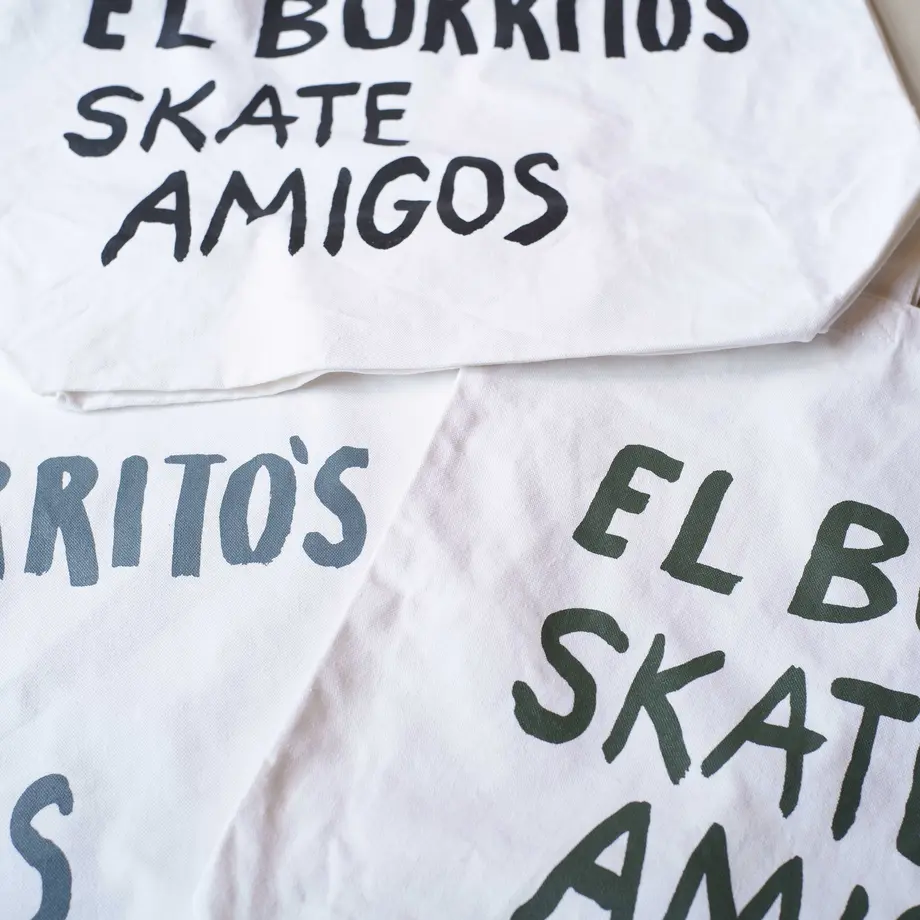 EL BURRITOS
SKATE
AMIGOS
RRITO'S
S
EL B
SKATE
AMIG